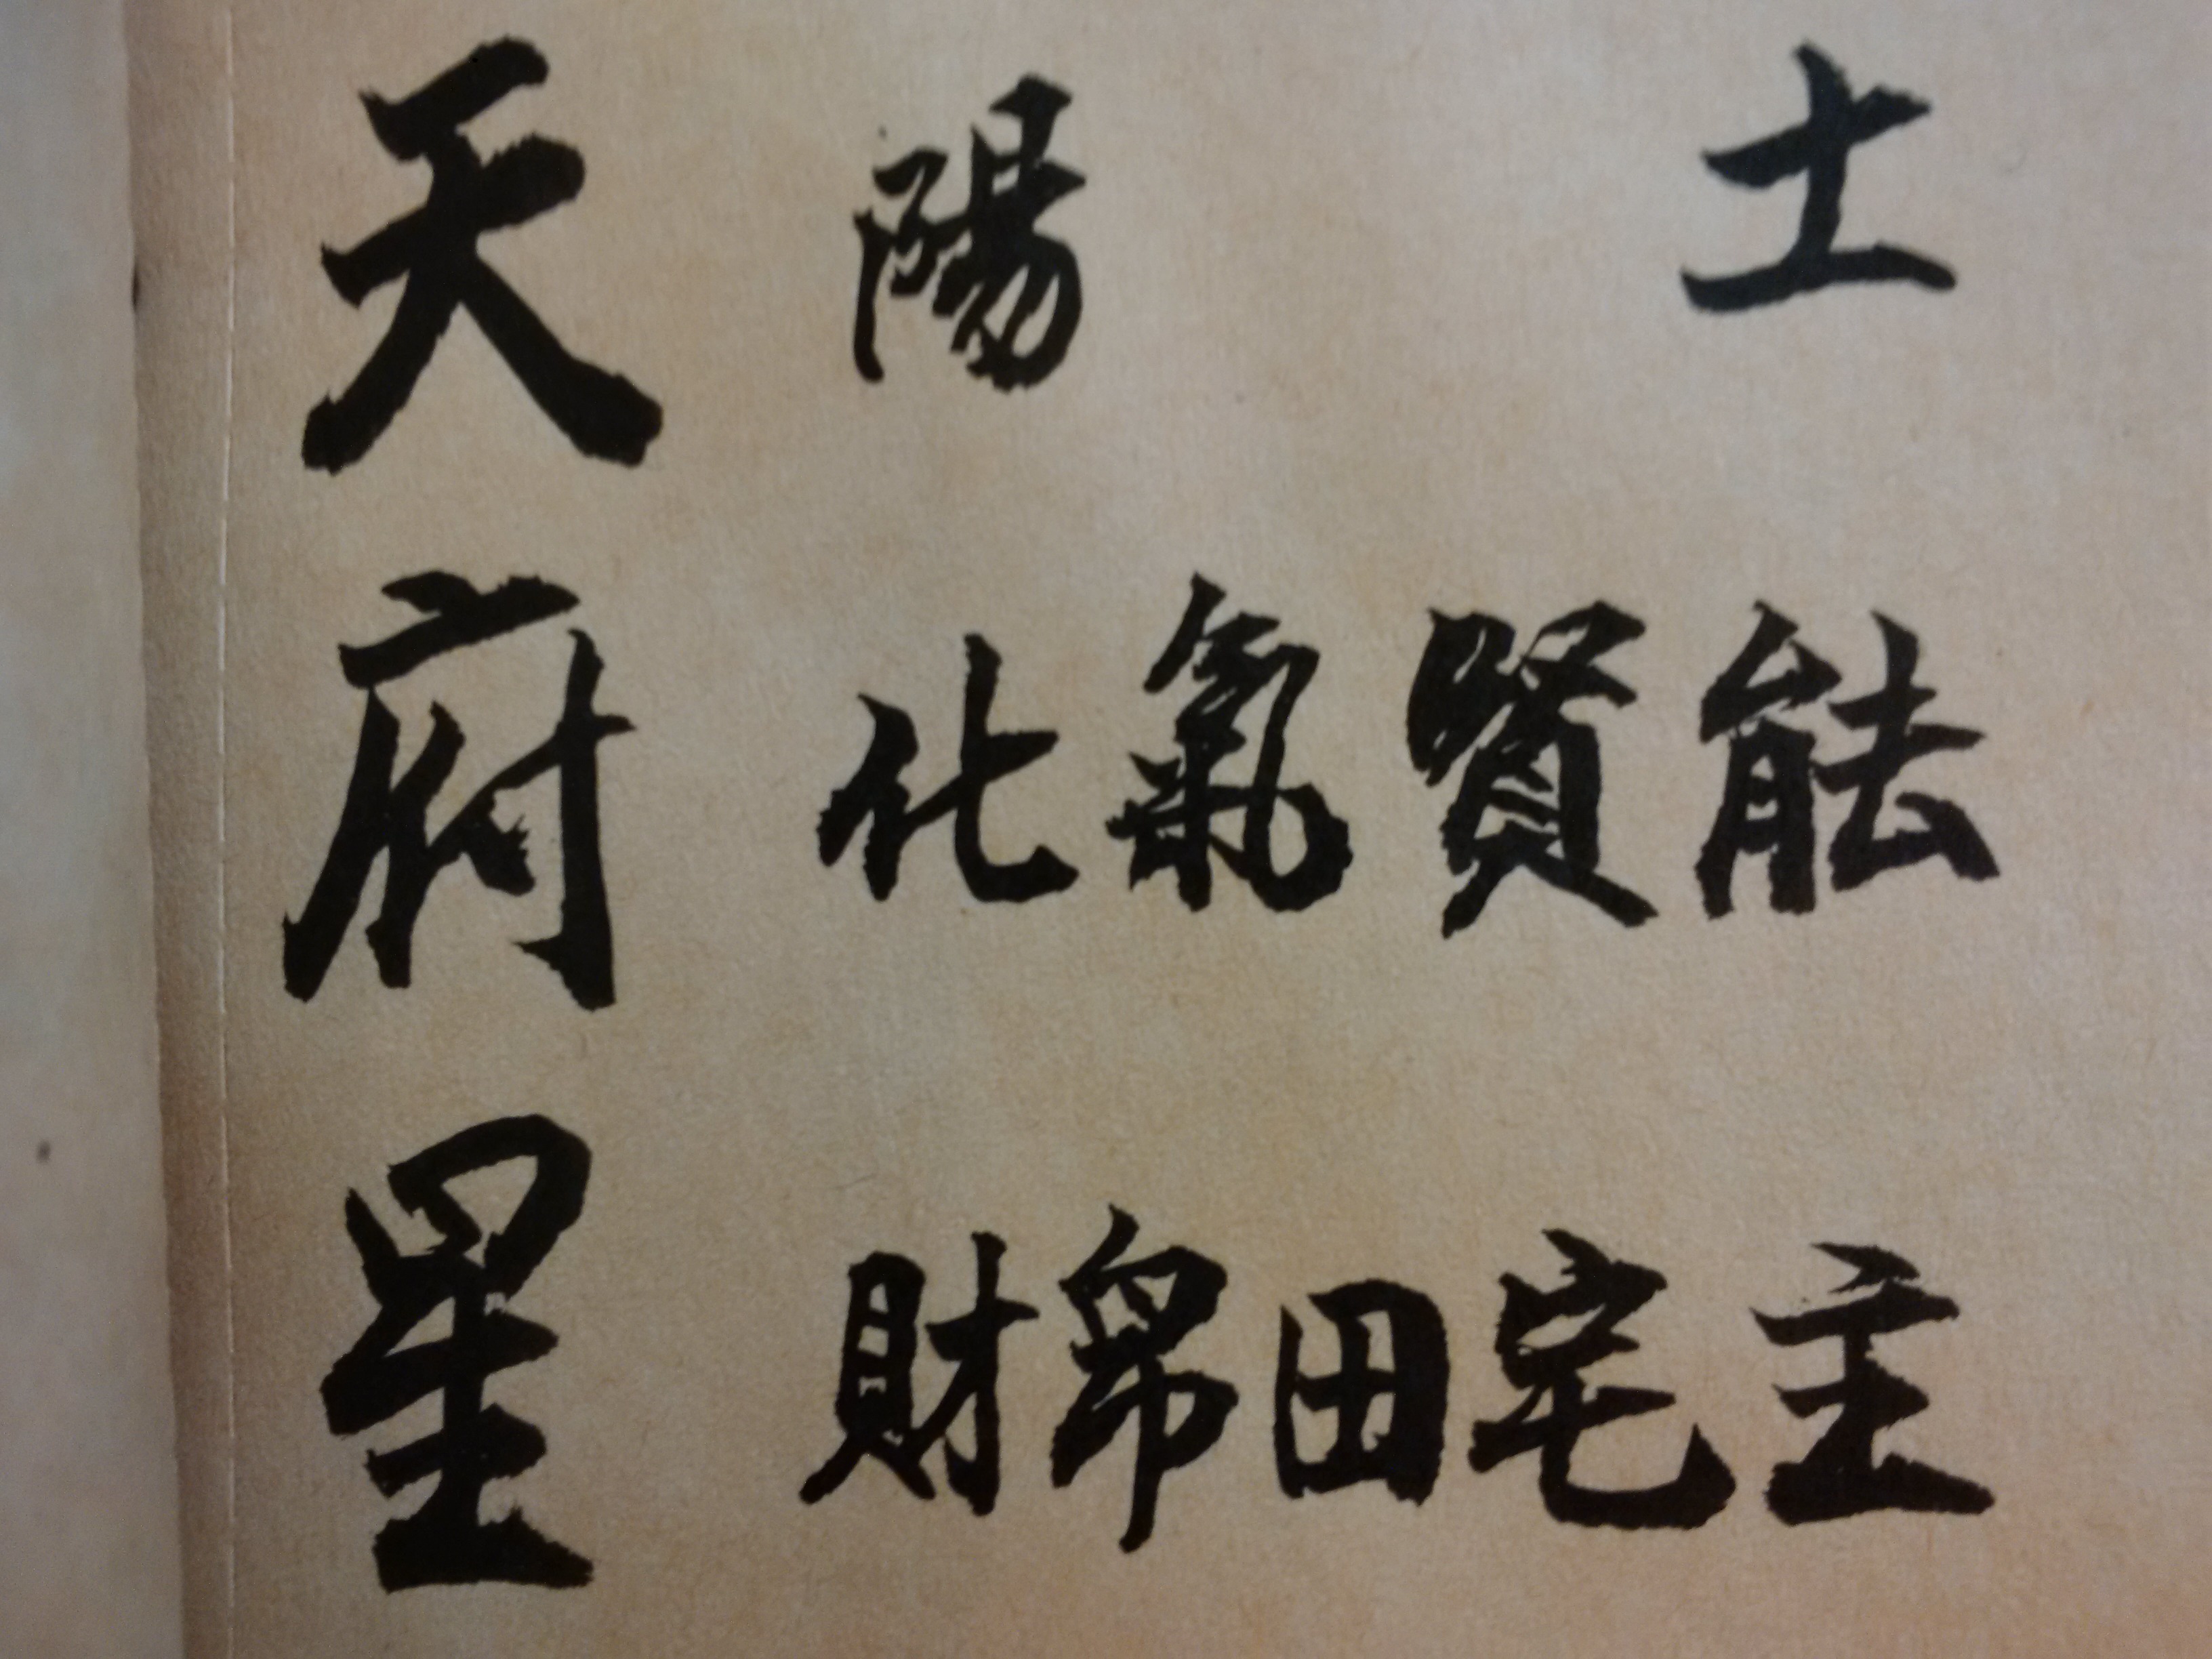 天府星
陽 土
化氣賢能
財帛田宅主